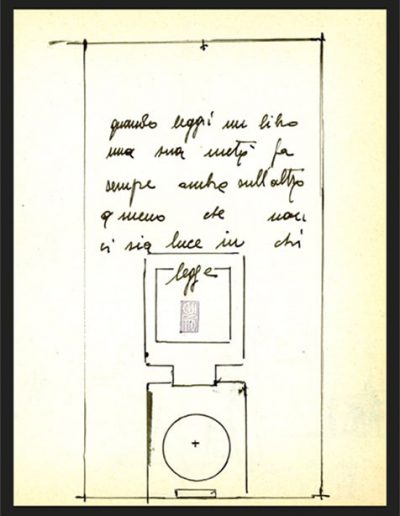 quando leggi un libro
una sua metà fa
sempre ombra sull'altra
a meno che non
ci sia luce in chi
legge